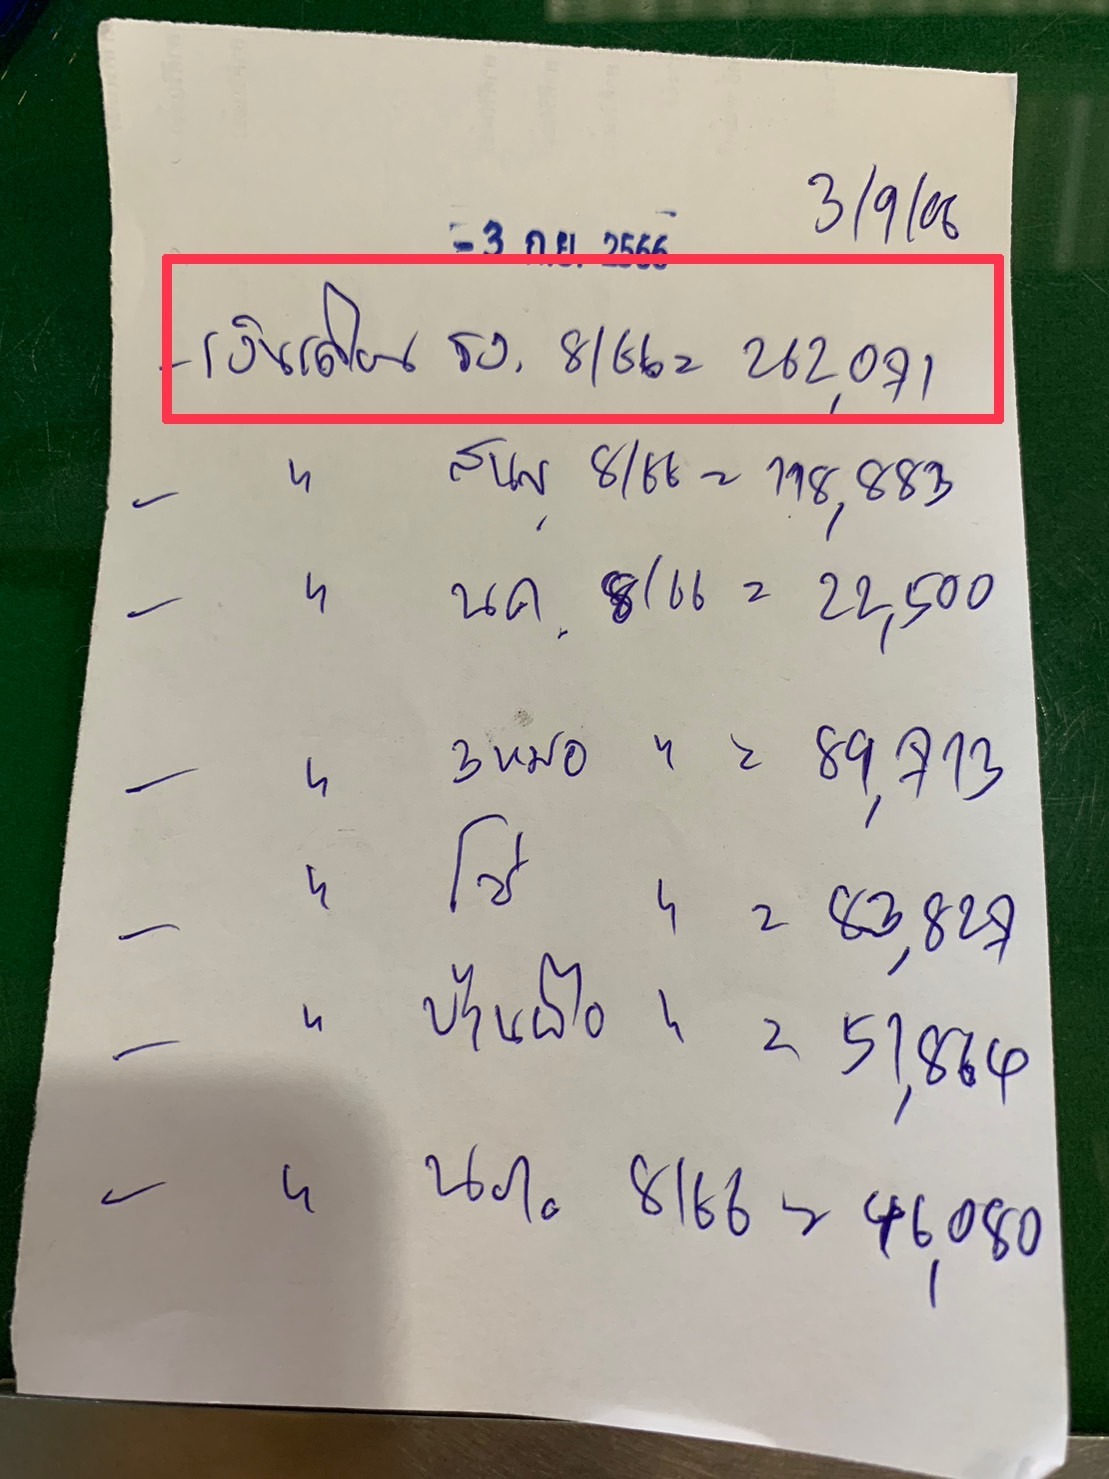 3/9/66
-3 ก.ย. 2566
- เงินเดือน รง. 8/66 = 262,071
- " สนญ. 8/66 = 118,883
- " นค. 8/66 = 22,500
- " 3หมอ " = 89,713
- " โซ่ " = 83,827
- " บ้านไผ่ " = 51,864
- " 8/66 = 46,080